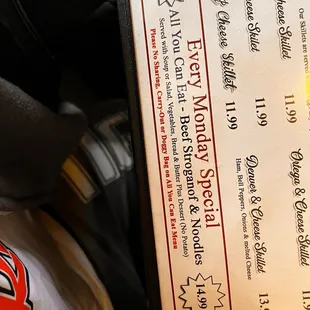 Our Skillets are served
Cheese Skillet
11.99
Cheese Skillet
11.99
Cheese Skillet
11.99
Ortega & Cheese Skillet
11.
Denver & Cheese Skillet
13.
Ham, Bell Peppers, Onions & melted Cheese
Every Monday Special
All You Can Eat - Beef Stroganof & Noodles
14.99
Served with Soup or Salad, Vegetables, Bread & Butter Plus Dessert (No Potato)
Please No Sharing, Carry-Out or Doggy Bag on All You Can Eat Menu